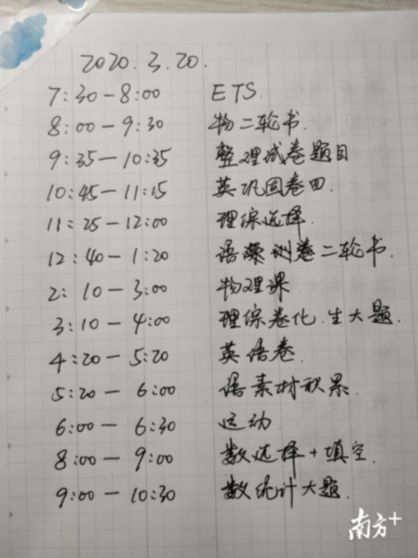 2020.3.20.
7:30-8:00 ETS.
8:00-9:30 物二轮书.
9:35-10:35 整理试卷题目
10:45-11:15 英巩固卷四.
11:25-12:00 理综选择.
12:40-1:20 语 训卷二轮书.
2:10-3:00 物理课
3:10-4:00 理综卷化.生大题.
4:20-5:20 英语卷.
5:20-6:00 语素材积累.
6:00-6:30 运动
8:00-9:00 数选择+填空.
9:00-10:30 数统计大题.
南方+